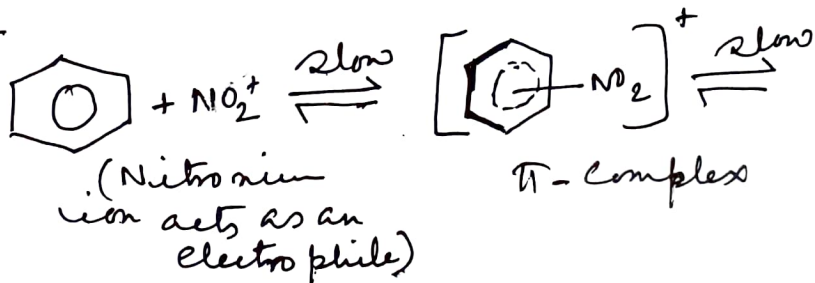 + NO₂⁺ slow ⇌ [ —NO₂ ]⁺ slow ⇌
(Nitronium
ion acts as an
electrophile)
π-Complex